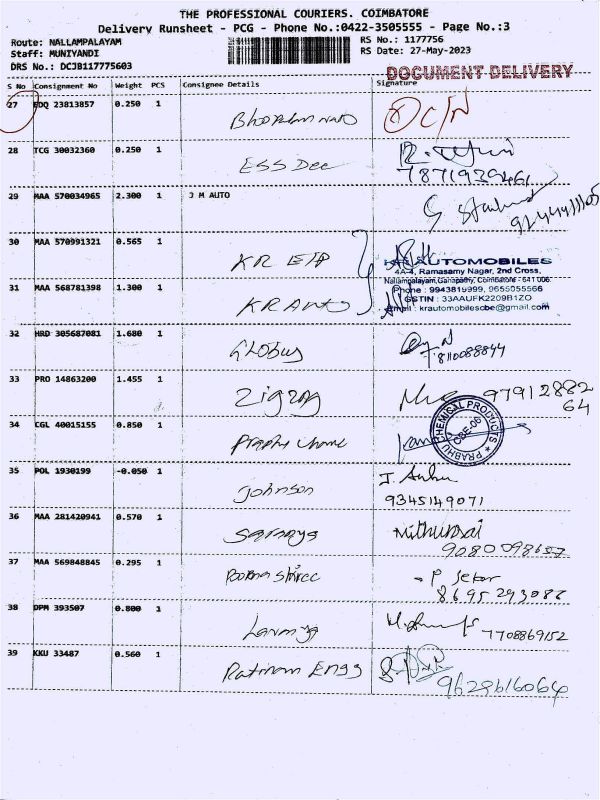 THE PROFESSIONAL COURIERS. COIMBATORE
Delivery Runsheet - PCG - Phone No.:0422-3505555 - Page No.:3
Route: NALLAMPALAYAM
Staff: MUNIYANDI
DRS No.: DCJB117775603
RS No.: 1177756
RS Date: 27-May-2023
DOCUMENT DELIVERY
S No Consignment No Weight PCS Consignee Details Signature
27 EDQ 23813857 0.250 1
28 TCG 30032360 0.250 1
ESS Dee
7871939461
29 MAA 570034965 2.300 1 J M AUTO
30 MAA 570991321 0.565 1
KR
AUTOMOBILES
4A-4, Ramasamy Nagar, 2nd Cross,
Nallampalayam, Ganapathy, Coimbatore - 641 006.
Phone : 9943819999, 9655055566
GSTIN : 33AAUFK2209B1ZO
Email : krautomobilescbe@gmail.com
31 MAA 568781398 1.300 1
KR Auto
32 HRD 305687081 1.680 1
Globus
8110088844
33 PRO 14863200 1.455 1
Zigzag
97912882
64
34 CGL 40015155 0.850 1
PRABHU CHEMICAL PRODUCTS
CBE-06
35 POL 1930199 -0.050 1
Johnson
9345149071
36 MAA 281420941 0.570 1
Saranya
37 MAA 569848845 0.295 1
P Sekar
8695293086
38 DPM 393507 0.800 1
7708869152
39 KKU 33487 0.560 1
Ratinam Engg
9628616064